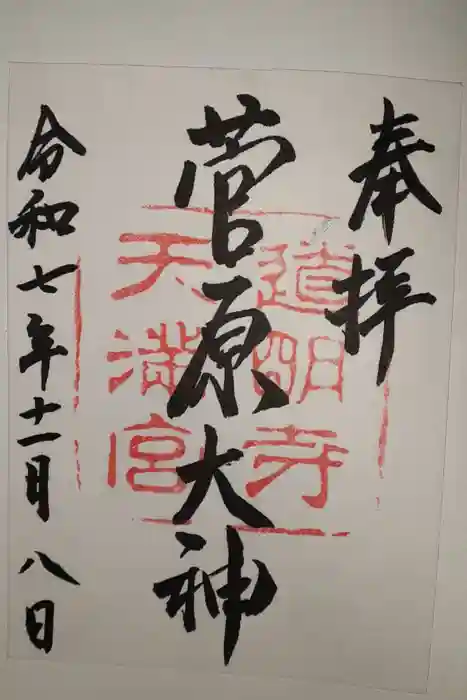 奉拝
道明寺
菅原大神
天満宮
令和七年十一月八日